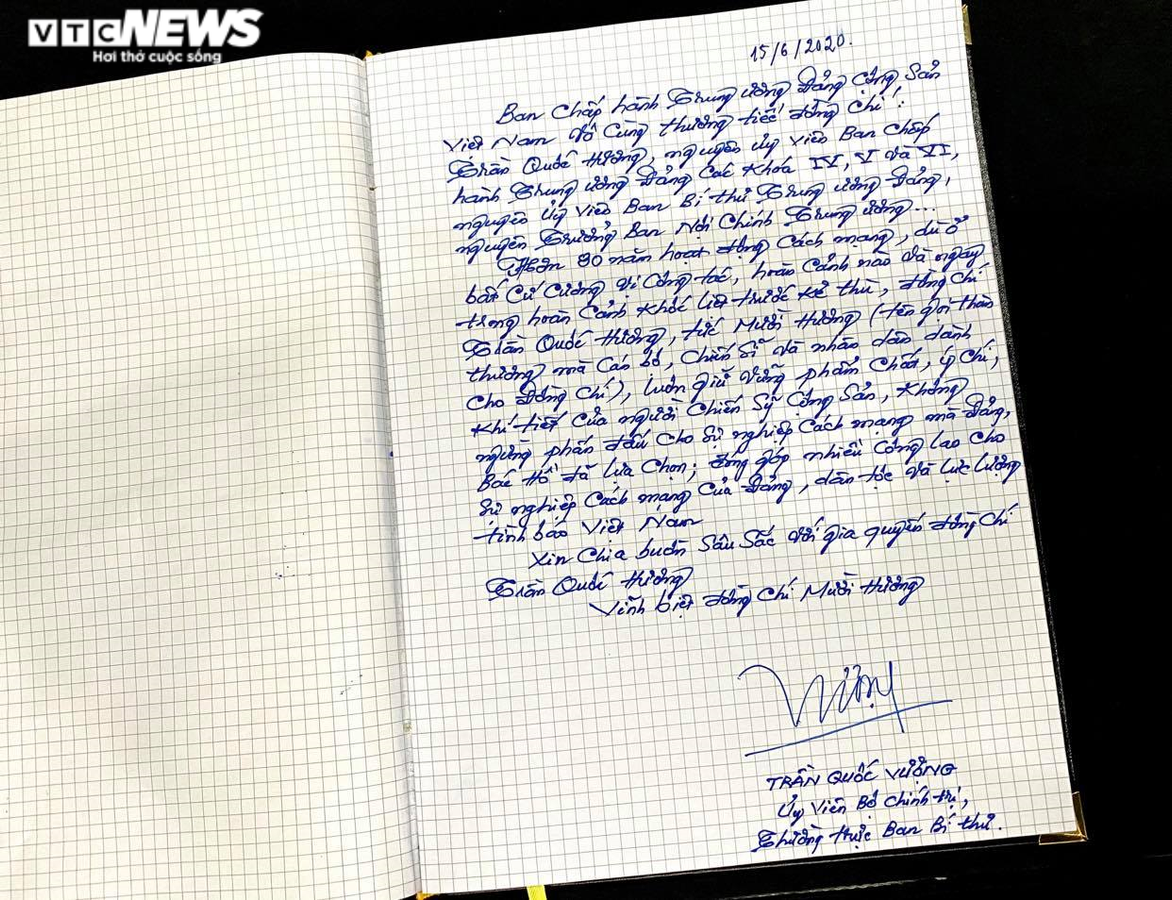 VTC NEWS
Hơi thở cuộc sống
15/6/2020.
Ban Chấp hành Trung ương Đảng Cộng Sản
Việt Nam vô cùng thương tiếc đồng chí:
Trần Quốc Hương, nguyên ủy viên Ban Chấp
hành Trung ương Đảng Các Khóa IV, V và VI,
nguyên Ủy viên Ban Bí thư Trung ương Đảng,
nguyên Trưởng Ban Nội Chính Trung ương...
Hơn 80 năm hoạt động Cách mạng, dù ở
bất cứ Cương vị Công tác, hoàn Cảnh nào và ngay
trong hoàn Cảnh Khốc liệt trước kẻ thù, đồng chí
Trần Quốc Hương, tức Mười Hương (tên gọi thân
thương mà Cán bộ, Chiến sĩ và nhân dân dành
cho Đồng Chí), luôn giữ vững phẩm Chất, ý chí,
Khí tiết Của người Chiến sỹ Cộng Sản, không
ngừng phấn đấu cho sự nghiệp Cách mạng mà Đảng,
Bác Hồ đã lựa chọn; đóng góp nhiều Công lao cho
sự nghiệp Cách mạng Của Đảng, dân tộc và lực lượng
tình báo Việt Nam
Xin Chia buồn Sâu Sắc với gia quyến đồng Chí
Trần Quốc Hương
Vĩnh biệt đồng Chí Mười Hương
TRẦN QUỐC VƯỢNG
Ủy Viên Bộ Chính trị,
Thường trực Ban Bí thư.